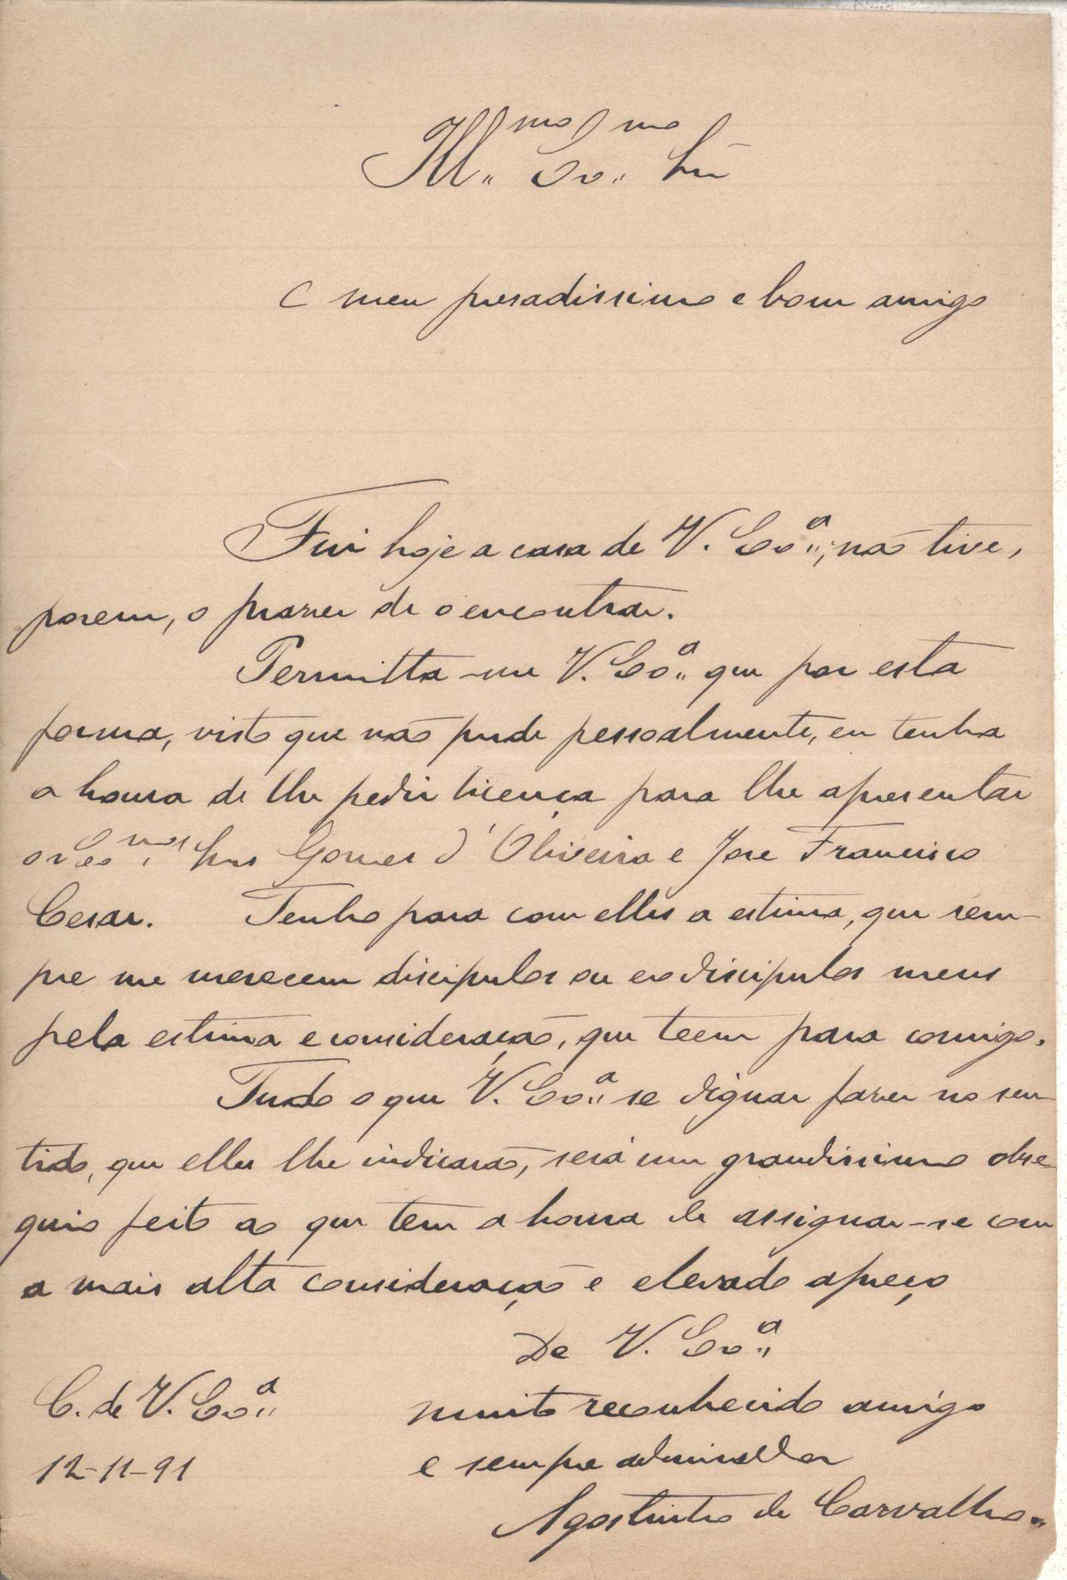 Ill.mo Ex.mo Snr
E meu presadissimo e bom amigo
Fui hoje a casa de V. Ex.a; não tive,
porem, o prazer de o encontrar.
Permitta-me V. Ex.a que por esta
forma, visto que não pude pessoalmente, eu tenha
a honra de lhe pedir licença para lhe apresentar
os Ex.mos Snrs Gomes d'Oliveira e Jose Francisco
Cesar. Tenho para com elles a estima, que sem-
pre me merecem discipulos ou exdiscipulos meus
pela estima e consideração, que teem para comigo.
Tudo o que V. Ex.a se dignar fazer no sen-
tido, que elles lhe indicarão, será um grandissimo obse-
quio feito ao que tem a honra de assignar-se com
a mais alta consideração e elevado apreço
De V. Ex.a
C. de V. Ex.a muito reconhecido amigo
12-11-91 e sempre admirador
Agostinho de Carvalho